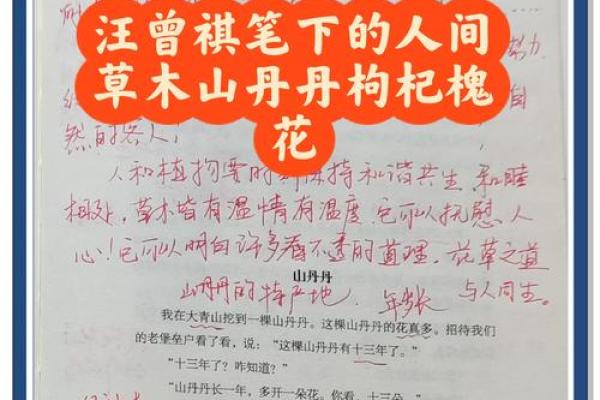 汪曾祺笔下的人间
草木山丹丹枸杞槐
花
努力
自
然的客人！
人和植物要时刻保持和谐共生，和睦
相处，草木皆有温情有温度，它可以抚慰人
心！它可以明白许多看不透的道理。花草之道
与人同生。
山丹丹
山丹丹的特产地 年岁长
我在大青山挖到一棵山丹丹。这棵山丹丹的花真多。招待我们
的老堡垒户看了看，说：“这棵山丹丹有十三年了。”
“十三年了？咋知道？”
“山丹丹长一年，多开一朵花。你看，十三朵。”